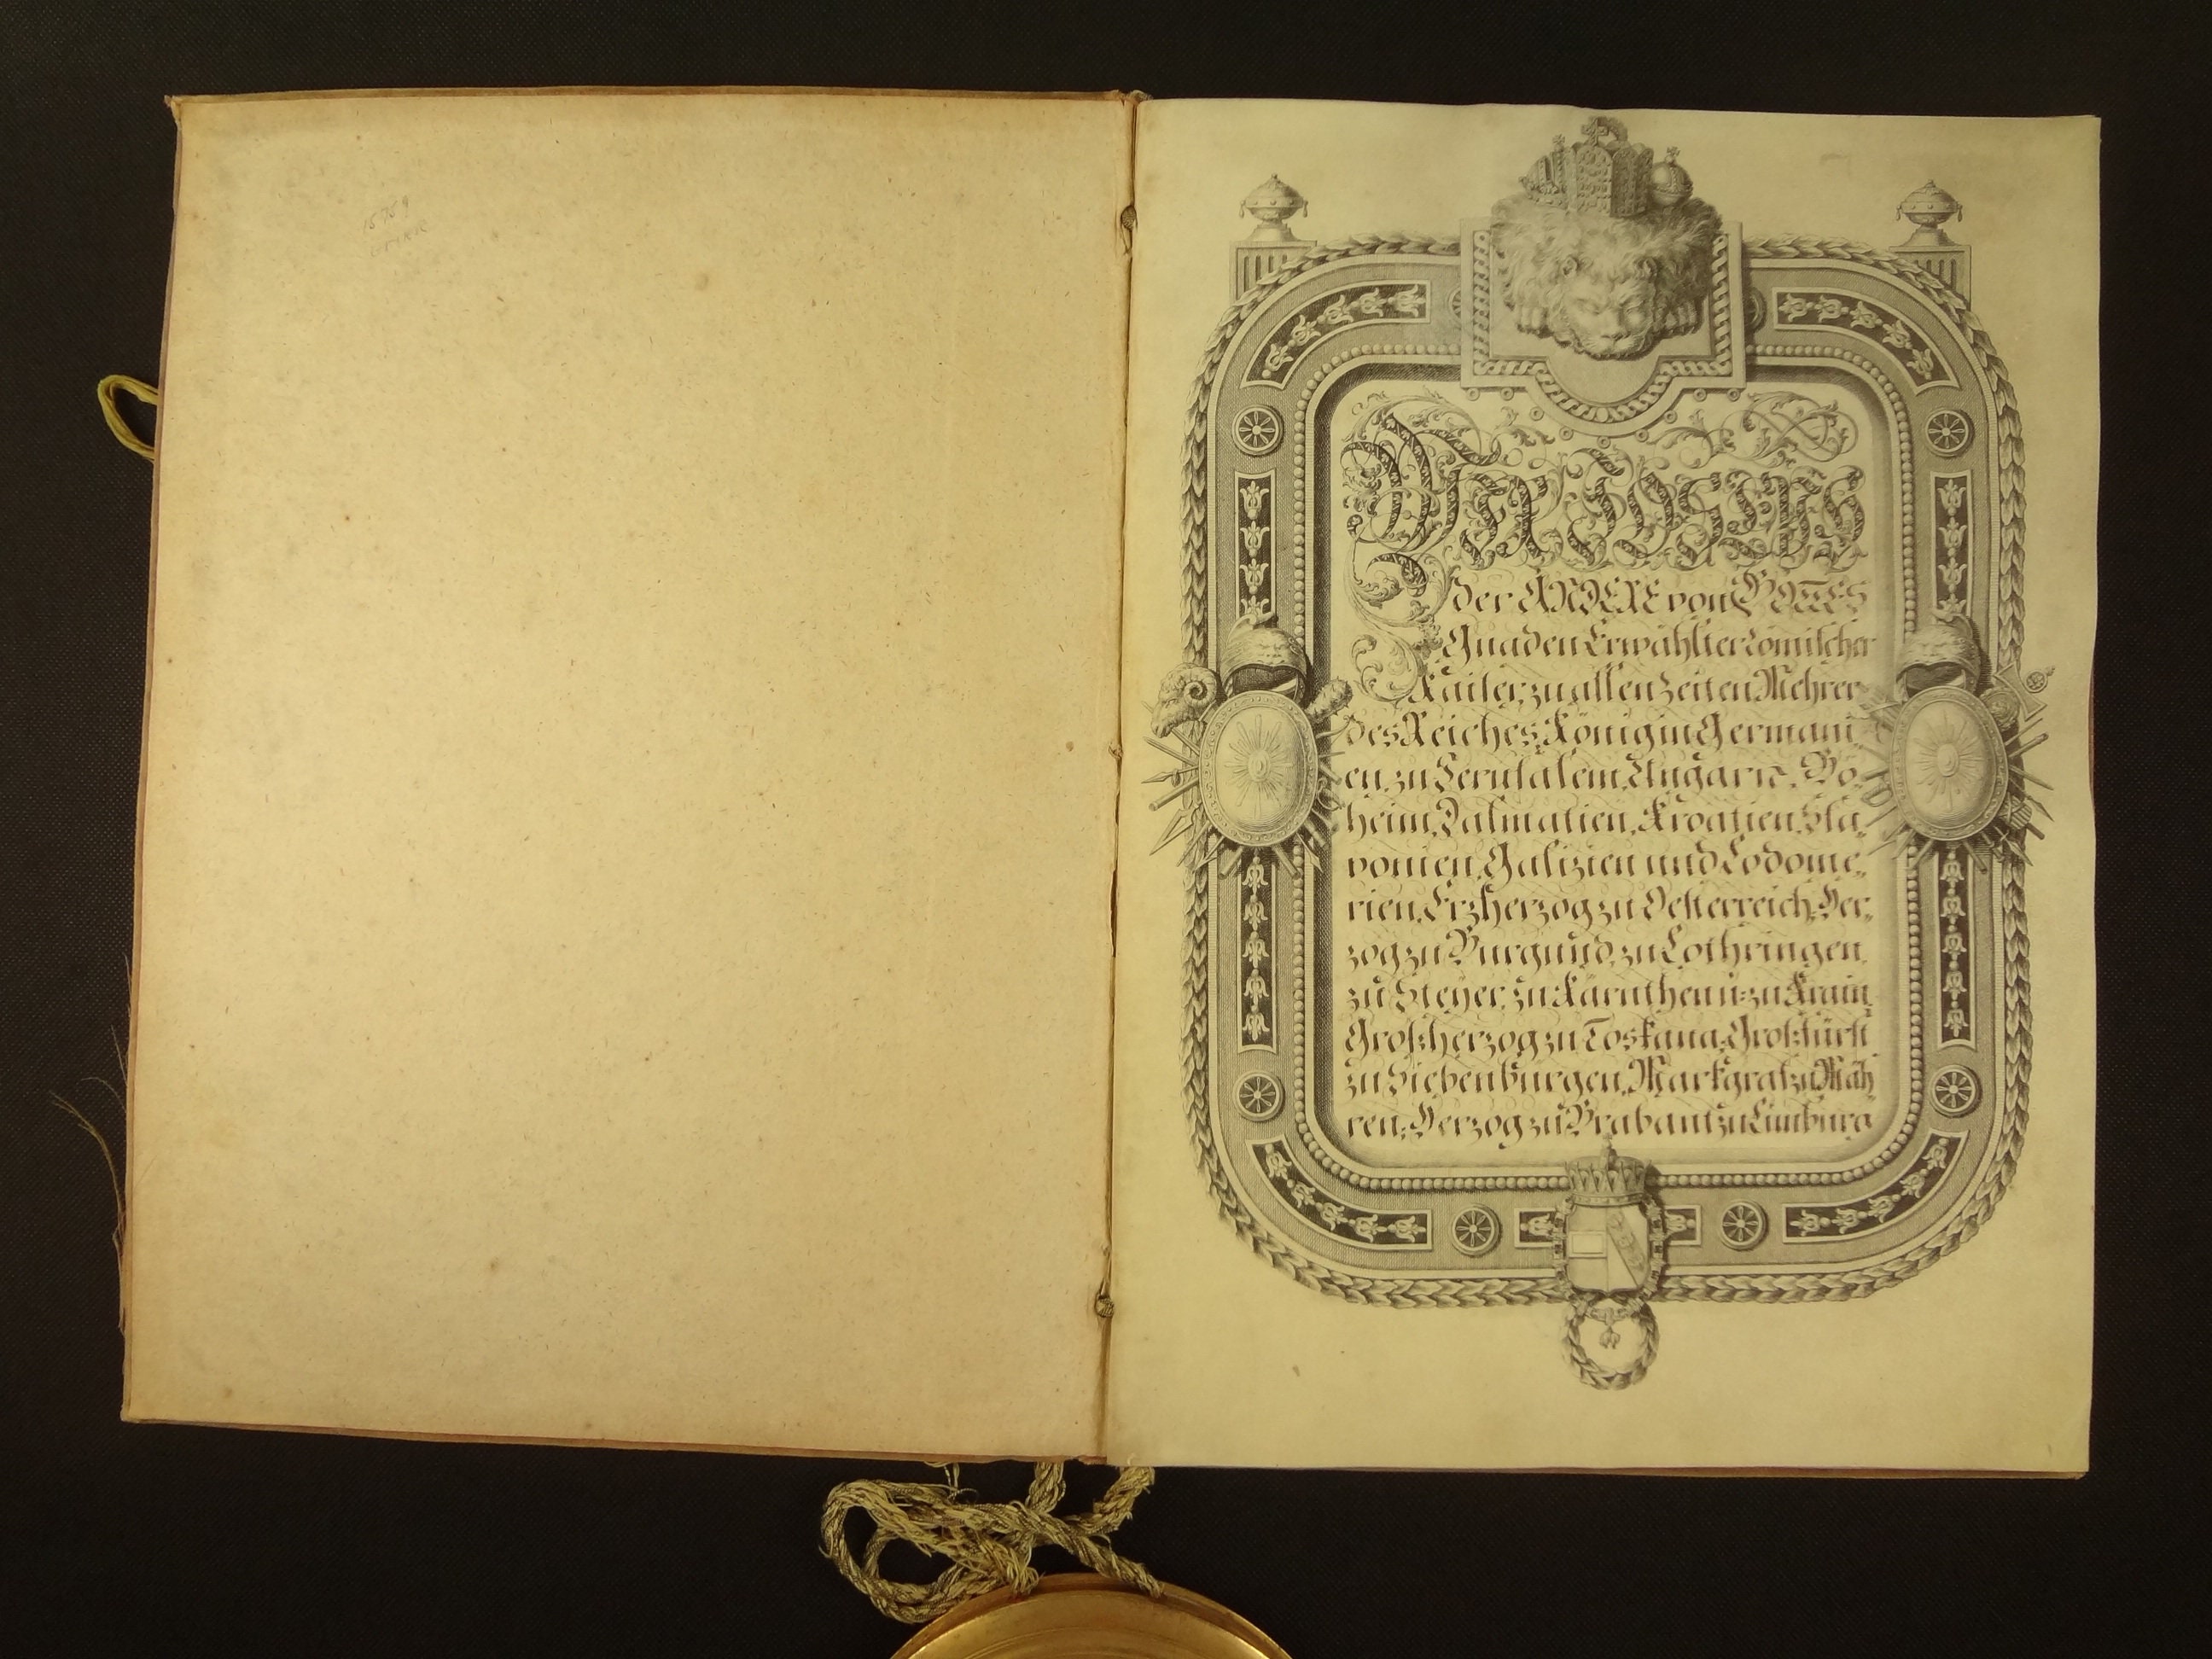 15759
WIR JOSEPH
der ANDERE von GOTTES
Gnaden Erwählter römischer
Kaiser, zu allen Zeiten Mehrer
des Reiches, König in Germani„
en, zu Jerusalem, Ungarn, Bö„
heim, Dalmatien, Kroatien, Sla„
vonien, Galizien und Lodome„
rien, Erzherzog zu Oesterreich, Her„
zog zu Burgund, zu Lothringen,
zu Steyer, zu Kärnthen u: zu Krain,
Großherzog zu Toskana, Großfürst
zu Siebenbürgen, Markgraf zu Mäh
ren, Herzog zu Brabant zu Limburg